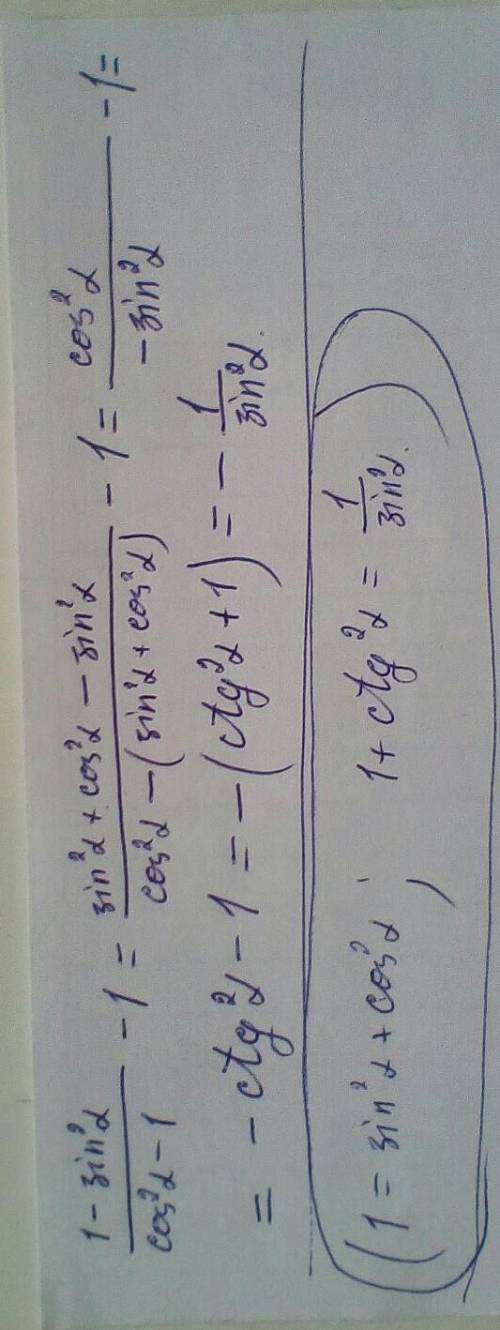 (1 - sin²α)/(cos²α - 1) - 1 = (sin²α + cos²α - sin²α)/(cos²α - (sin²α + cos²α)) - 1 = cos²α/(-sin²α) - 1 =
= - ctg²α - 1 = - (ctg²α + 1) = - 1/sin²α.
(1 = sin²α + cos²α ; 1 + ctg²α = 1/sin²α.)